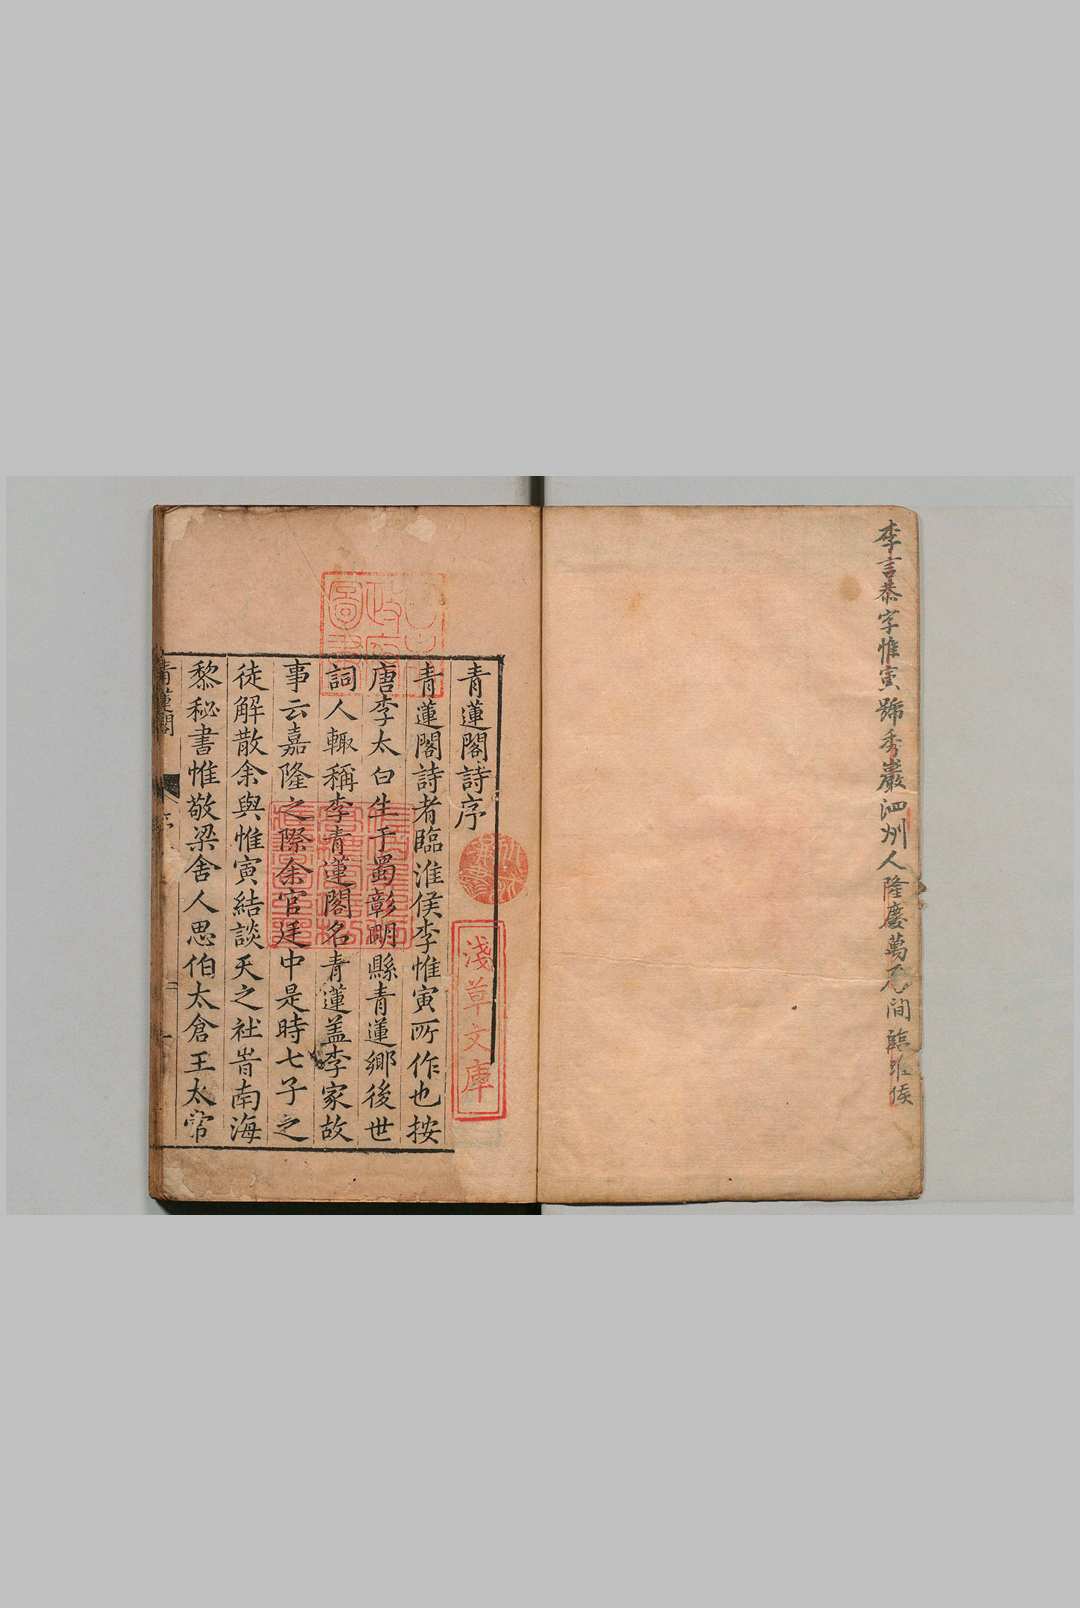 李言恭字惟寅號秀巖泗州人隆慶萬厯間臨淮侯
青蓮閣詩序
青蓮閣詩者臨淮侯李惟寅所作也按
唐李太白生于蜀彰明縣青蓮鄉後世
詞人輙稱李青蓮閣名青蓮盖李家故
事云嘉隆之際余官廷中是時七子之
徒解散余與惟寅結談天之社旹南海
黎秘書惟敬梁舍人思伯太倉王太常
青蓮閣
序
一
淺草文庫
圖書